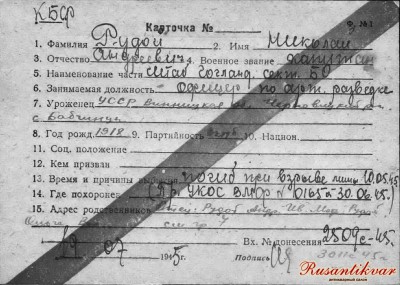 КБФ
Карточка №
Ф. № 2
1. Фамилия Рудой 2. Имя Николай
3. Отчество Андреевич 4. Военное звание капитан
5. Наименование части Штаб Гогланд. сект. БО
6. Занимаемая должность Офицер по арт. разведке
7. Уроженец УССР Винницкая Черновицкий
с Бабчинцы
8. Год рожд. 1918 9. Партийность 10. Национ.
11. Соц. положение
12. Кем призван
13. Время и причины погиб при взрыве мины 10.05.45
14. Где похоронен (Пр. УКОС ВМФ № 0165 30.06.45г.)
15. Адрес родственников отец: Рудой
19 07 1945г. Вх. № донесения 2509с-45.
Подпись
Rusantikvar
антикварный салон